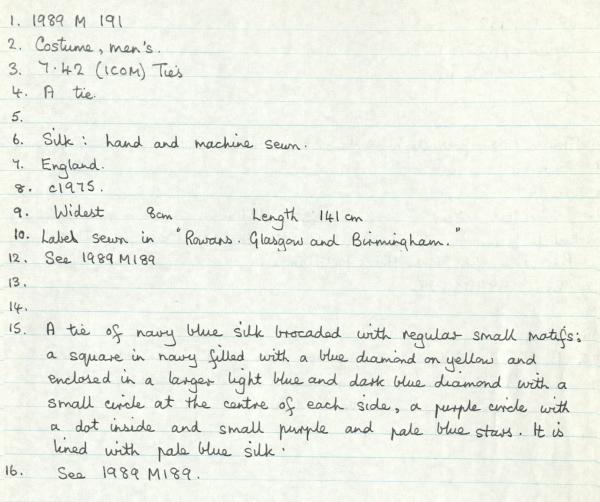 1. 1989 M 191
2. Costume, men's.
3. 7.42 (ICOM) Ties
4. A tie.
5.
6. Silk: hand and machine sewn.
7. England.
8. c1975.
9. Widest 8cm Length 141cm
10. Label sewn in "Rowans. Glasgow and Birmingham."
12. See 1989 M189
13.
14.
15. A tie of navy blue silk brocaded with regular small motifs:
a square in navy filled with a blue diamond on yellow and
enclosed in a larger light blue and dark blue diamond with a
small circle at the centre of each side, a purple circle with
a dot inside and small purple and pale blue stars. It is
lined with pale blue silk.
16. See 1989 M189.